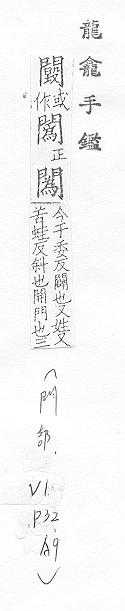 龍龕手鑑
或作 䦱 正
今于委反闢也又姓又
苦蛙反斜也開門也三
(門部. V1. P32. A9)